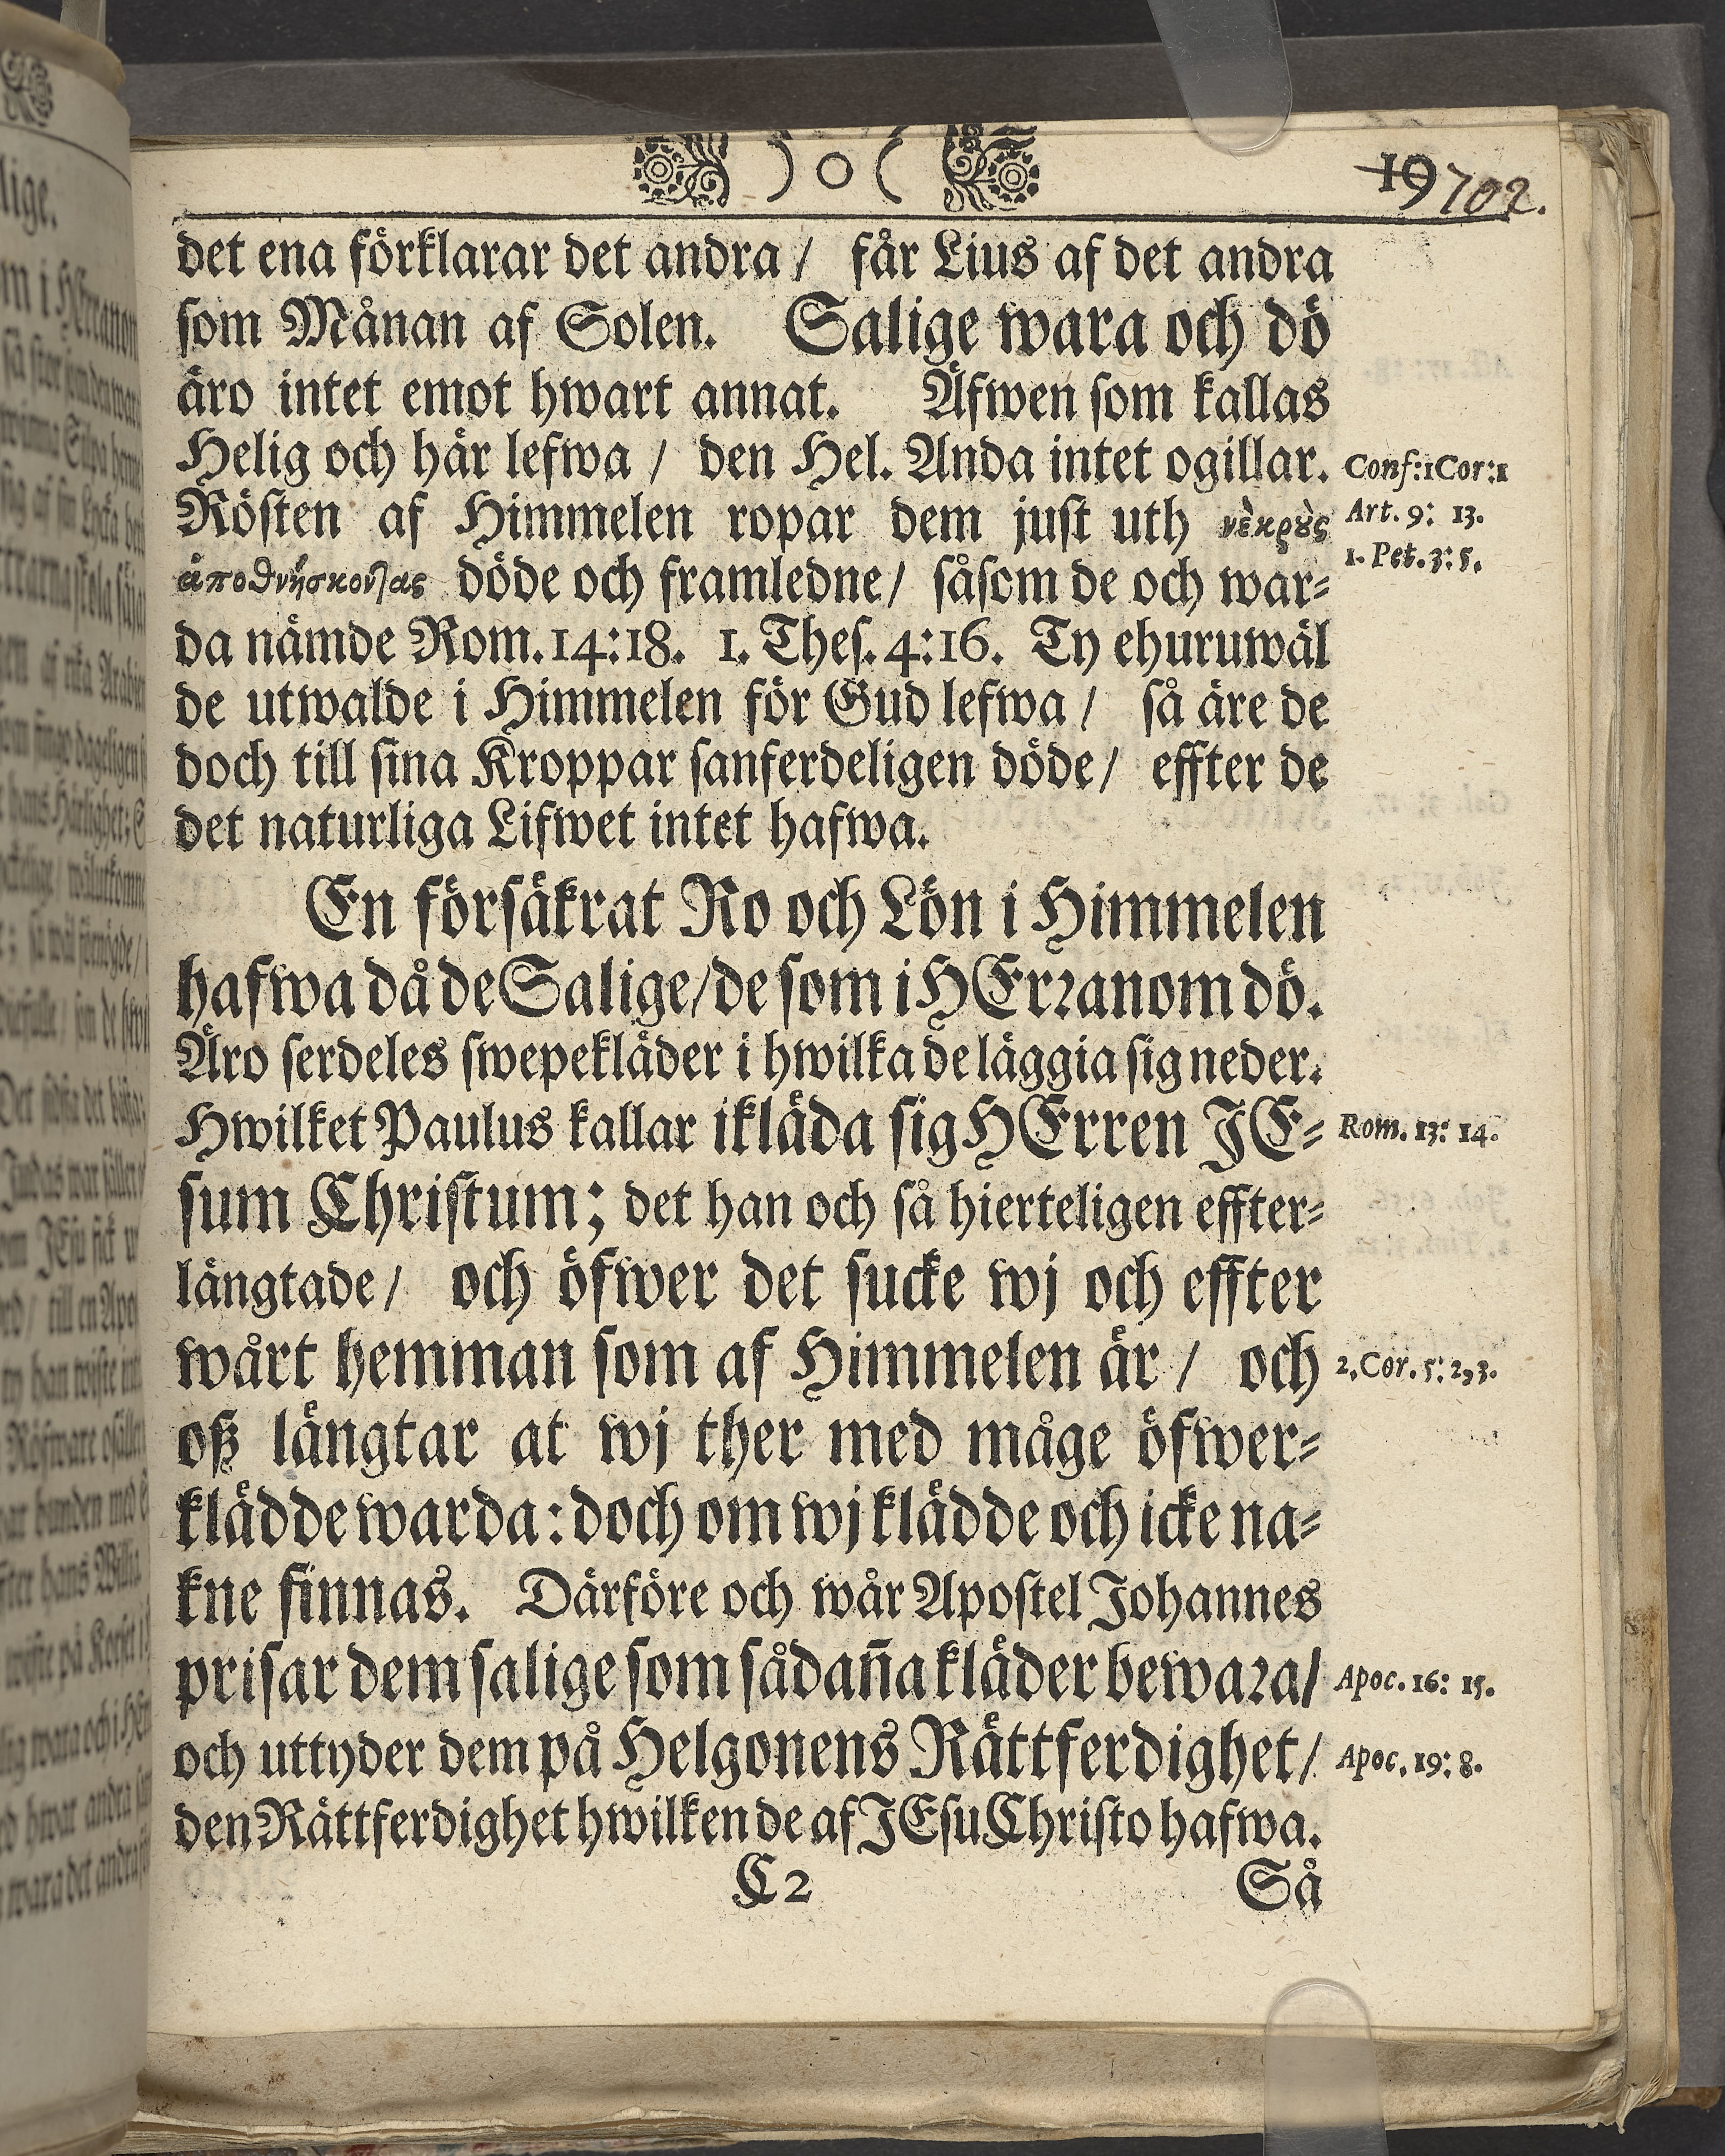 ) o ( 19 702.
det ena förklarar det andra / får Lius af det andra
som Månan af Solen. Salige wara och dö
äro intet emot hwart annat. Äfwen som kallas
Helig och här lefwa / den Hel. Anda intet ogillar. Conf:1Cor:1
Rösten af Himmelen ropar dem just uth νὲκρȣ̀ς Art. 9: 13.
1. Pet. 3: 5.
ἀποθνήσκονͿας döde och framledne / såsom de och war-
da nämde Rom. 14:18. 1. Thes. 4:16. Ty ehuruwäl
de utwalde i Himmelen för Gud lefwa / så äre de
doch till sina Kroppar sanferdeligen döde / effter de
det naturliga Lifwet intet hafwa.
En försäkrat Ro och Lön i Himmelen
hafwa då de Salige / de som i HErranom dö.
Äro serdeles swepekläder i hwilka de läggia sig neder.
Hwilket Paulus kallar ikläda sig HErren JE- Rom. 13: 14.
sum Christum; det han och så hierteligen effter-
längtade / och öfwer det sucke wj och effter
wårt hemman som af Himmelen är / och 2. Cor. 5: 2, 3.
oß längtar at wj ther med måge öfwer-
klädde warda: doch om wj klädde och icke na-
kne finnas. Därföre och wår Apostel Johannes
prisar dem salige som sådan̄a kläder bewara / Apoc. 16: 15.
och uttyder dem på Helgonens Rättferdighet / Apoc. 19: 8.
den Rättferdighet hwilken de af JEsu Christo hafwa.
C 2 Så